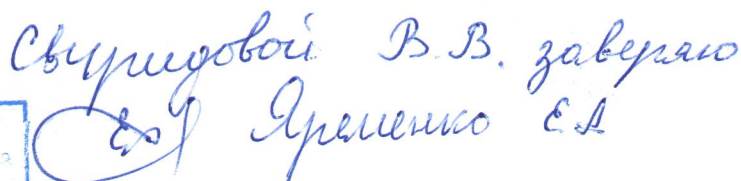 Свиридовой В.В. заверяю
Яременко Е А